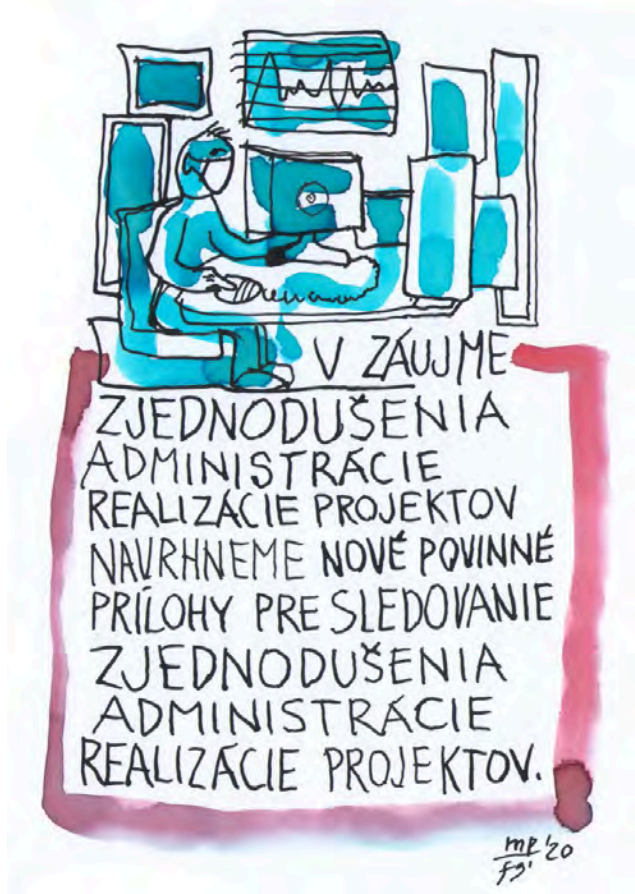 V ZÁUJME
ZJEDNODUŠENIA
ADMINISTRÁCIE
REALIZÁCIE PROJEKTOV
NAVRHNEME NOVÉ POVINNÉ
PRÍLOHY PRE SLEDOVANIE
ZJEDNODUŠENIA
ADMINISTRÁCIE
REALIZÁCIE PROJEKTOV.